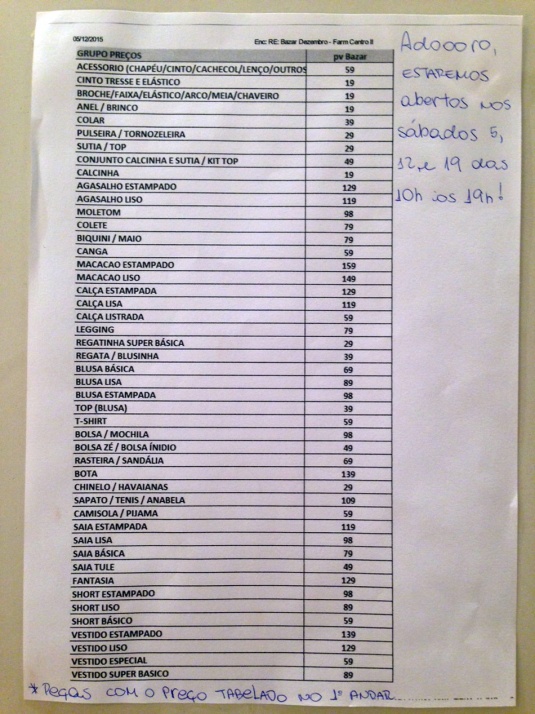 05/12/2015 Enc: RE: Bazar Dezembro - Farm Centro II
GRUPO PREÇOS pv Bazar
ACESSORIO (CHAPÉU/CINTO/CACHECOL/LENÇO/OUTROS 59
CINTO TRESSE E ELÁSTICO 19
BROCHE/FAIXA/ELÁSTICO/ARCO/MEIA/CHAVEIRO 19
ANEL / BRINCO 19
COLAR 39
PULSEIRA / TORNOZELEIRA 29
SUTIA / TOP 29
CONJUNTO CALCINHA E SUTIA / KIT TOP 49
CALCINHA 19
AGASALHO ESTAMPADO 129
AGASALHO LISO 119
MOLETOM 98
COLETE 79
BIQUINI / MAIO 79
CANGA 59
MACACAO ESTAMPADO 159
MACACAO LISO 149
CALÇA ESTAMPADA 129
CALÇA LISA 119
CALÇA LISTRADA 59
LEGGING 79
REGATINHA SUPER BÁSICA 29
REGATA / BLUSINHA 39
BLUSA BÁSICA 69
BLUSA LISA 89
BLUSA ESTAMPADA 98
TOP (BLUSA) 39
T-SHIRT 59
BOLSA / MOCHILA 98
BOLSA ZÉ / BOLSA ÍNIDIO 49
RASTEIRA / SANDÁLIA 69
BOTA 139
CHINELO / HAVAIANAS 29
SAPATO / TENIS / ANABELA 109
CAMISOLA / PIJAMA 59
SAIA ESTAMPADA 119
SAIA LISA 98
SAIA BÁSICA 79
SAIA TULE 49
FANTASIA 129
SHORT ESTAMPADO 98
SHORT LISO 89
SHORT BÁSICO 59
VESTIDO ESTAMPADO 139
VESTIDO LISO 129
VESTIDO ESPECIAL 59
VESTIDO SUPER BASICO 89
Adoooro,
ESTAREMOS
abertos nos
sábados 5,
12 e 19 das
10h às 19h!
* Peças com o preço TABELADO NO 1º ANDAR